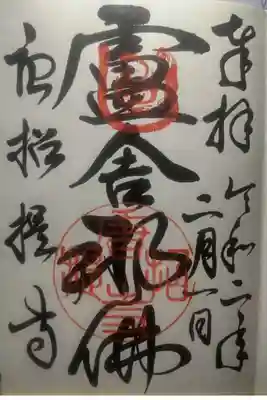 奉拝
令和二年
二月一日
盧舎那佛
唐招提寺